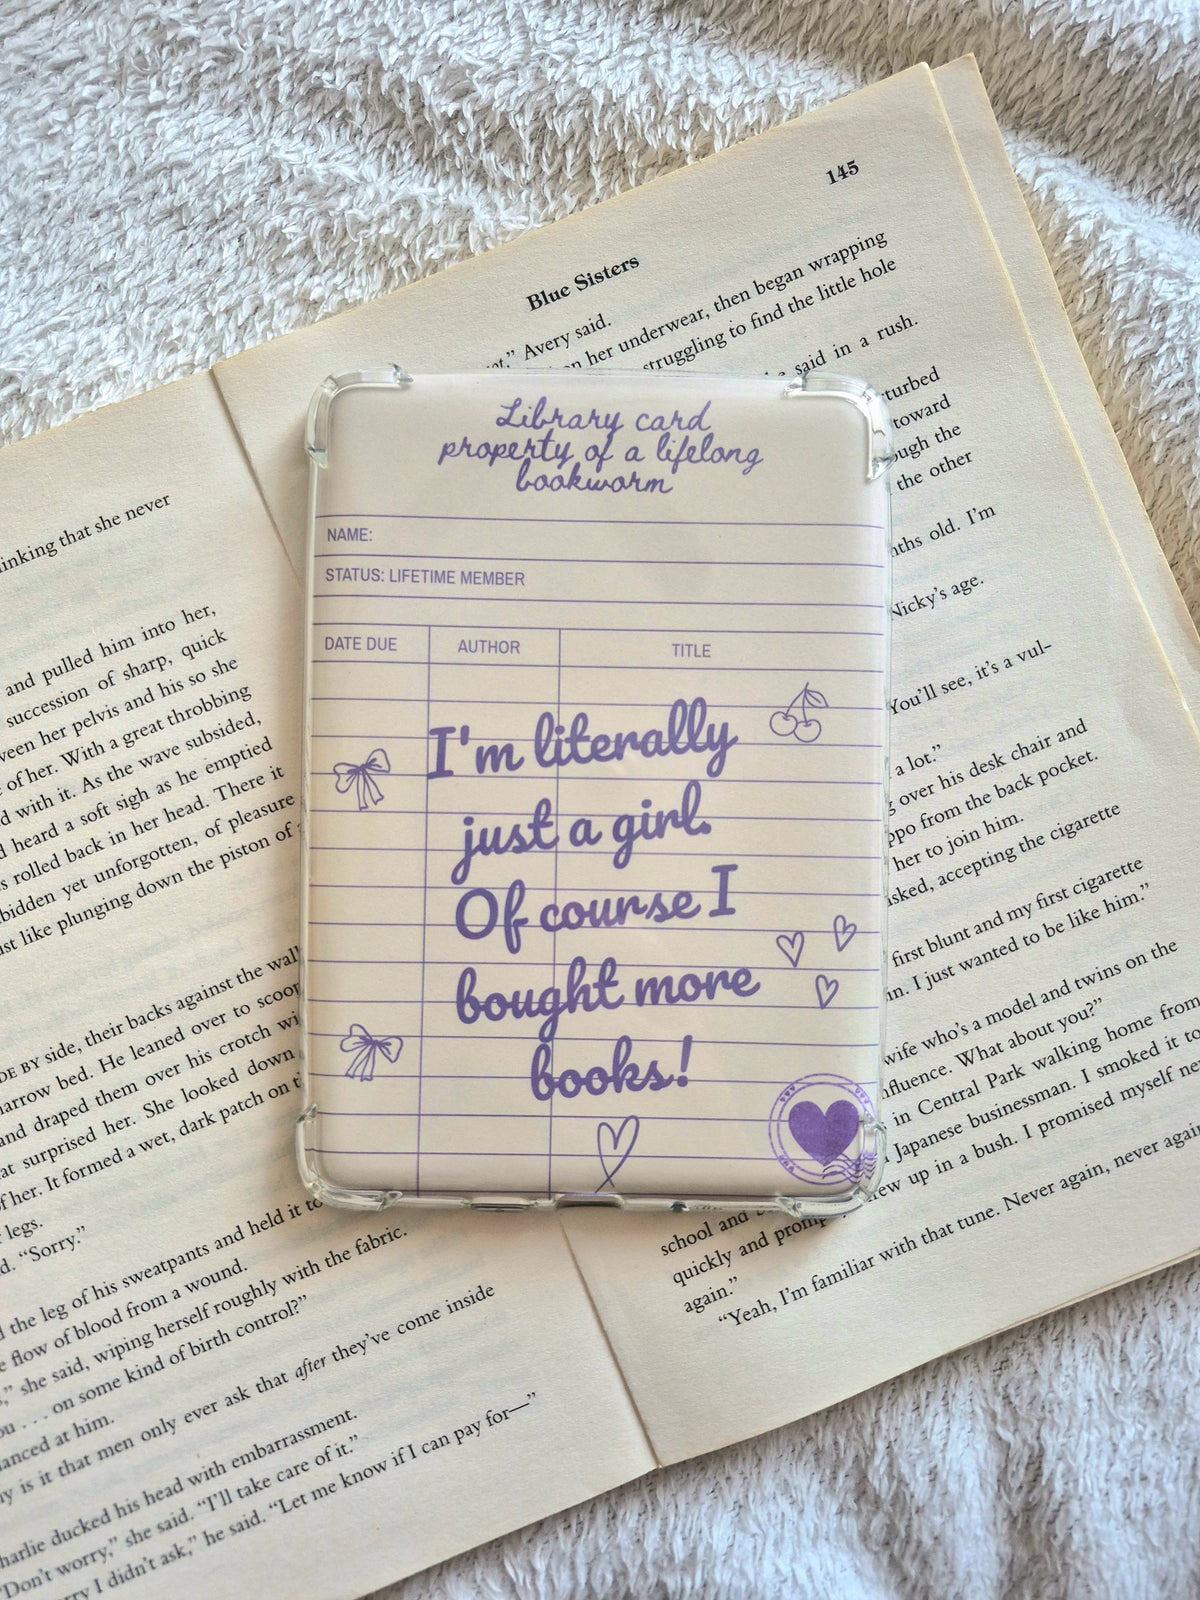 145
Blue Sisters
Avery said.
on her underwear, then began wrapping
struggling to find the little hole
said in a rush.
toward
the other
old. I'm
Nicky's age.
You'll see, it's a vul-
a lot."
over his desk chair and
from the back pocket.
her to join him.
accepting the cigarette
first blunt and my first cigarette
I just wanted to be like him."
wife who's a model and twins on the
What about you?"
in Central Park walking home from
Japanese businessman. I smoked it to
up in a bush. I promised myself
school and
quickly and
that tune. Never again, never again
again."
"Yeah, I'm familiar with
Library card
property of a lifelong
bookworm
NAME:
STATUS: LIFETIME MEMBER
DATE DUE AUTHOR TITLE
I'm literally
just a girl.
Of course I
bought more
books!
that she never
and pulled him into her,
succession of sharp, quick
her pelvis and his so she
of her. With a great throbbing
with it. As the wave subsided,
heard a soft sigh as he emptied
rolled back in her head. There it
yet unforgotten, of pleasure
like plunging down the piston of
BY side, their backs against the
bed. He leaned over to
and draped them over his crotch
surprised her. She looked down
of her. It formed a wet, dark patch on
legs.
"Sorry."
the leg of his sweatpants and held it to
flow of blood from a wound.
she said, wiping herself roughly with the fabric.
. . . on some kind of birth control?"
at him.
is it that men only ever ask that after they've come inside
ducked his head with embarrassment.
"Don't worry," she said. "I'll take care of it."
I didn't ask," he said. "Let me know if I can pay for—"